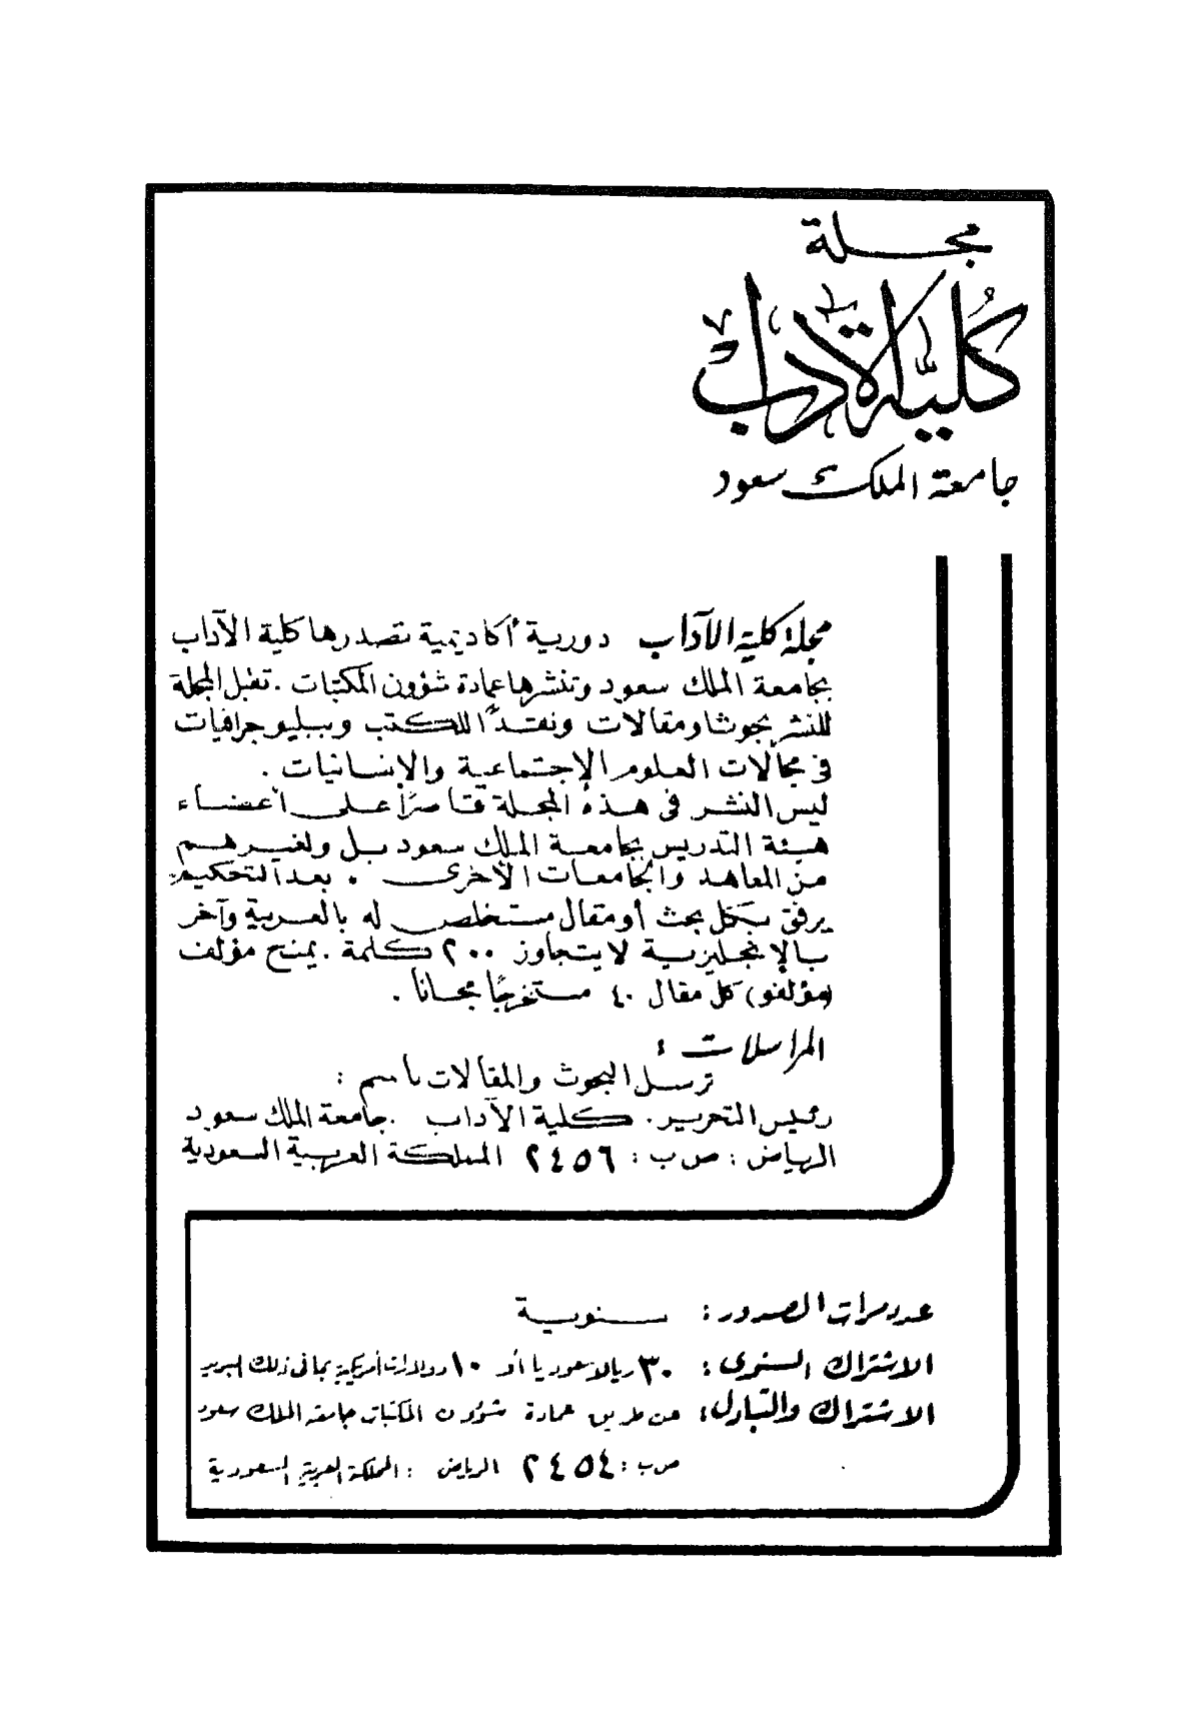 مجلة
كُليَّة الآداب
جامعة الملك سعود
مجلة كلية الآداب دورية أكاديمية تصدرها كلية الآداب
بجامعة الملك سعود وتنشرها عمادة شؤون المكتبات . تقبل المجلة
للنشر بحوثا ومقالات ونقدًا للكتب وببليوجرافيات
في مجالات العلوم الإجتماعية والإنسانيات .
ليس النشر في هذه المجلة قاصرًا على أعضاء
هيئة التدريس بجامعة الملك سعود بل ولغيرهم
من المعاهد والجامعات الأخرى . بعد التحكيم
يرفق بكل بحث أو مقال مستخلص له بالعربية وآخر
بالإنجليزية لا يتجاوز ٢٠٠ كلمة . يمنح مؤلف
(مؤلفو) كل مقال ٤٠ مستخرجًا مجانًا .
المراسلات :
ترسل البحوث والمقالات باسم :
رئيس التحرير . كلية الآداب . جامعة الملك سعود
الرياض : ص ب : ٢٤٥٦ المملكة العربية السعودية
عدد مرات الصدور : سنوية
الاشتراك السنوى : ٣٠ ريالا سعوديا أو ١٠ دولارات أمريكية بما في ذلك البريد
الاشتراك والتبادل : عن طريق عمادة شؤون المكتبات جامعة الملك سعود
ص ب : ٢٤٥٤ الرياض : المملكة العربية السعودية